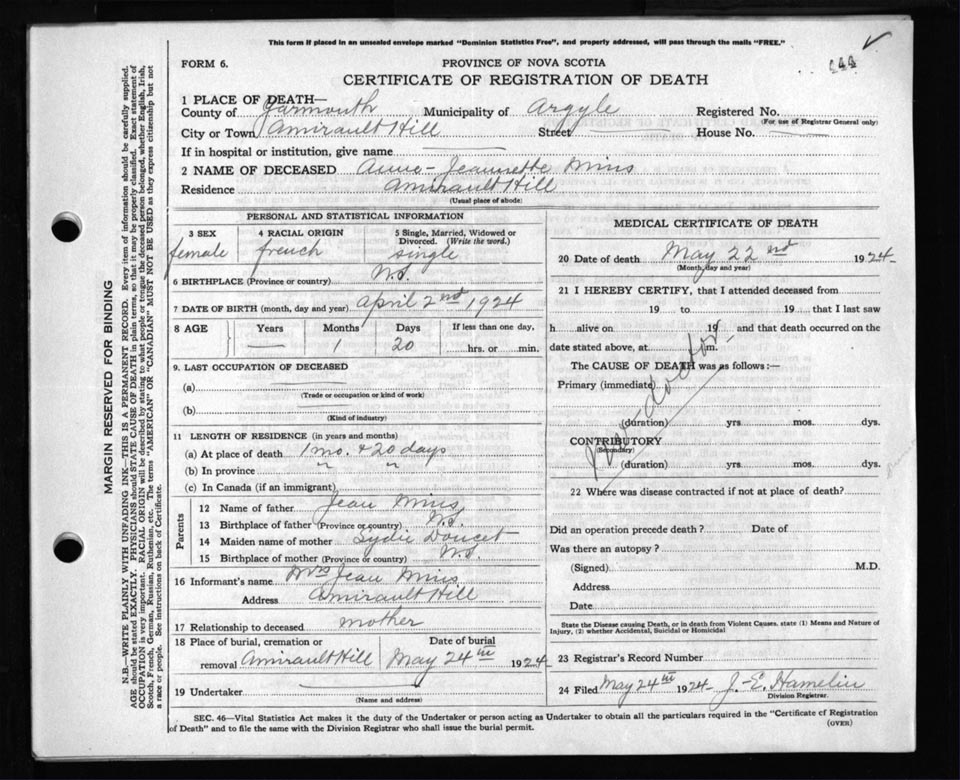 This form if placed in an unsealed envelope marked "Dominion Statistics Free", and properly addressed, will pass through the mails "FREE."
FORM 6.
PROVINCE OF NOVA SCOTIA
CERTIFICATE OF REGISTRATION OF DEATH
1 PLACE OF DEATH—
County of Yarmouth Municipality of Argyle Registered No.
(For use of Registrar General only)
City or Town Amirault Hill Street House No.
If in hospital or institution, give name
2 NAME OF DECEASED Anne-Jeannette Mius
Residence Amirault Hill
(Usual place of abode)
PERSONAL AND STATISTICAL INFORMATION
3 SEX 4 RACIAL ORIGIN 5 Single, Married, Widowed or Divorced. (Write the word.)
female french single
6 BIRTHPLACE (Province or country) N.S.
7 DATE OF BIRTH (month, day and year) April 2nd 1924
8 AGE Years Months Days If less than one day,
1 20 hrs. or min.
9. LAST OCCUPATION OF DECEASED
(a)
(Trade or occupation or kind of work)
(b)
(Kind of industry)
11 LENGTH OF RESIDENCE (in years and months)
(a) At place of death 1 mo. & 20 days
(b) In province " "
(c) In Canada (if an immigrant)
Parents
12 Name of father Jean Mius
13 Birthplace of father (Province or country) N.S.
14 Maiden name of mother Lydie Doucet
15 Birthplace of mother (Province or country) N.S.
16 Informant's name Mrs Jean Mius
Address Amirault Hill
17 Relationship to deceased mother
18 Place of burial, cremation or removal Amirault Hill Date of burial May 24th 1924
19 Undertaker
(Name and address)
MEDICAL CERTIFICATE OF DEATH
20 Date of death May 22nd 1924
(Month, day and year)
21 I HEREBY CERTIFY, that I attended deceased from
19 to 19 that I last saw
h alive on 19 and that death occurred on the
date stated above, at m.
The CAUSE OF DEATH was as follows:—
Primary (immediate)
no doctor
(duration) yrs mos. dys.
CONTRIBUTORY
(Secondary)
(duration) yrs. mos. dys.
22 Where was disease contracted if not at place of death?
Did an operation precede death? Date of
Was there an autopsy?
(Signed) M.D.
Address
Date
State the Disease causing Death, or in death from Violent Causes, state (1) Means and Nature of
Injury, (2) whether Accidental, Suicidal or Homicidal
23 Registrar's Record Number
24 Filed May 24th 1924 J. E. Hamelin
Division Registrar.
SEC. 46—Vital Statistics Act makes it the duty of the Undertaker or person acting as Undertaker to obtain all the particulars required in the "Certificate of Registration
of Death" and to file the same with the Division Registrar who shall issue the burial permit.
(OVER)
MARGIN RESERVED FOR BINDING
N.B.—WRITE PLAINLY WITH UNFADING INK—THIS IS A PERMANENT RECORD. Every item of information should be carefully supplied.
AGE should be stated EXACTLY. PHYSICIANS should STATE CAUSE OF DEATH in plain terms, so that it may be properly classified. Exact statement of
OCCUPATION is very important. RACIAL ORIGIN will be described by stating to what people or tongue the deceased person belonged, whether English, Irish,
Scotch, French, German, Russian, Ruthenian, etc. The terms "AMERICAN" OR "CANADIAN" MUST NOT BE USED as they express citizenship but not
a race or people. See instructions on back of Certificate.